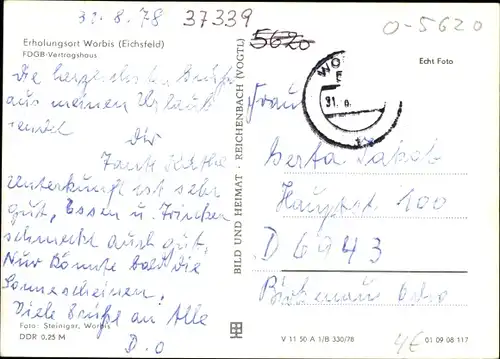 31.8.78 37339
0-5620
5620
Erholungsort Worbis (Eichsfeld)
FDGB-Vertragshaus
Echt Foto
Die herzlichsten Grüße
aus meinen Urlaub
sendet
Dir
Tante Käthe
Unterkunft ist sehr
gut, Essen u. Trinken
schmeckt auch gut.
Nur könnte bald die
Sonne scheinen.
Viele Grüße an Alle
D.O
Foto: Steiniger, Worbis
DDR 0,25 M
BILD UND HEIMAT · REICHENBACH (VOGTL)
WO
31.
Frau
Berta Jakob
Hauptst. 100
D 6943
Birkenau
V 11 50 A 1/B 330/78
4€
01 09 08 117